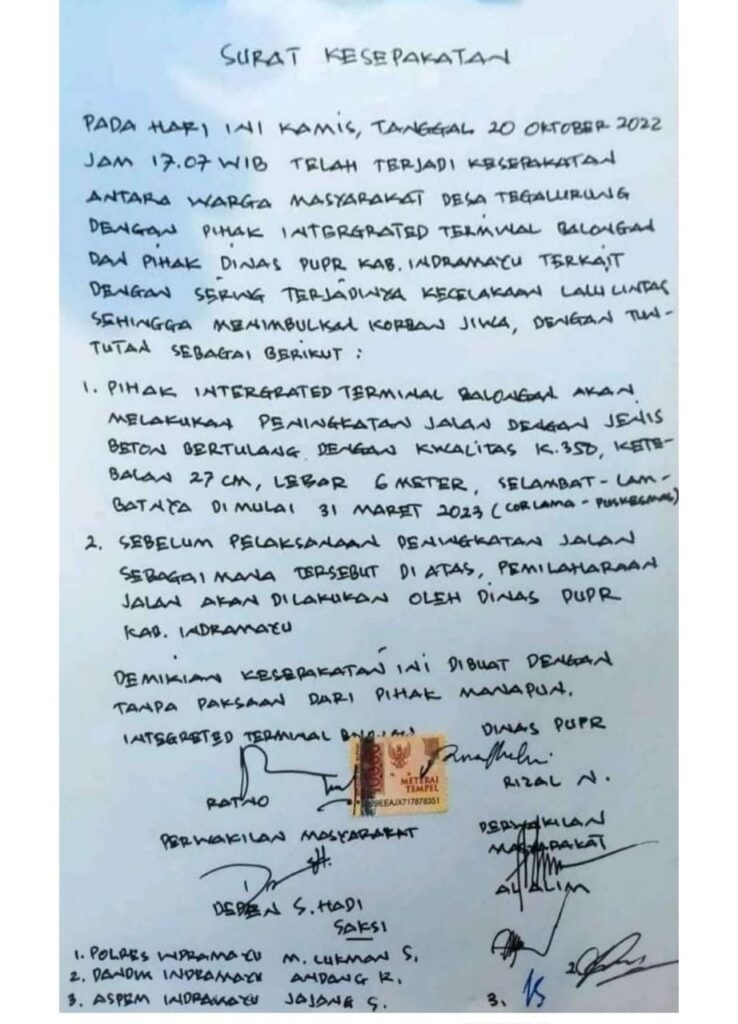 SURAT KESEPAKATAN
PADA HARI INI KAMIS, TANGGAL 20 OKTOBER 2022
JAM 17.07 WIB TELAH TERJADI KESEPAKATAN
ANTARA WARGA MASYARAKAT DESA TEGALURUNG
DENGAN PIHAK INTERGRATED TERMINAL BALONGAN
DAN PIHAK DINAS PUPR KAB. INDRAMAYU TERKAIT
DENGAN SERING TERJADINYA KECELAKAAN LALU LINTAS
SEHINGGA MENIMBULKAN KORBAN JIWA, DENGAN TUN-
TUTAN SEBAGAI BERIKUT :
1. PIHAK INTERGRATED TERMINAL BALONGAN AKAN
MELAKUKAN PENINGKATAN JALAN DENGAN JENIS
BETON BERTULANG DENGAN KWALITAS K.350, KETE-
BALAN 27 CM, LEBAR 6 METER, SELAMBAT-LAM-
BATNYA DIMULAI 31 MARET 2023 (COR LAMA - PUSKESMAS)
2. SEBELUM PELAKSANAAN PENINGKATAN JALAN
SEBAGAI MANA TERSEBUT DI ATAS, PEMILAHARAAN
JALAN AKAN DILAKUKAN OLEH DINAS PUPR
KAB. INDRAMAYU
DEMIKIAN KESEPAKATAN INI DIBUAT DENGAN
TANPA PAKSAAN DARI PIHAK MANAPUN.
INTEGRATED TERMINAL
DINAS PUPR
METERAI
TEMPEL
EEAJX717878351
RATNO
RIZAL N.
PERWAKILAN MASYARAKAT
PERWAKILAN
MASYARAKAT
DEDEN S. HADI
AL ALIM
SAKSI
1. POLRES INDRAMAYU M. LUKMAN S.
2. DANDIM INDRAMAYU ANDANG K.
3. ASPEM INDRAMAYU JAJANG S.
2
3.